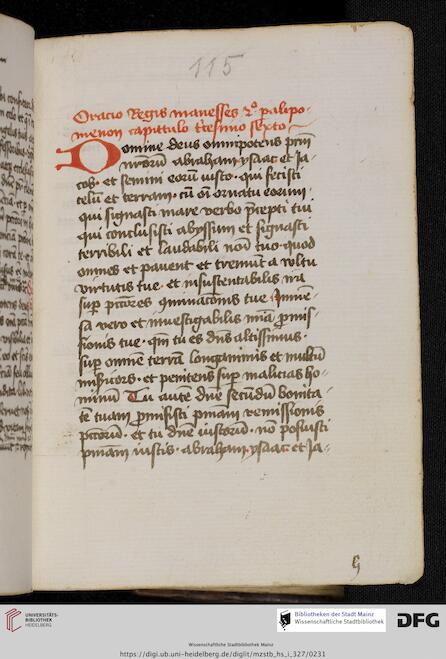 115
Oracio Regis manesses 2º palipo-
menon capitulo tcesimo sexto
Domine deus omnipotens prim
abraham ysaac et Ja-
cob · et semini eorū iusto · qui fecisti
celū et terram · cū oī ornatu eorum ·
qui signasti mare verbo precepti tui
qui conclusisti abyssum et signasti
terribili et laudabili noī tuo · quod
omnes et pauent et tremūt a voltu
virtutis tue · et insustentabilis ira
sup pctores cominacionis tue · Inmē-
sa vero et inuestigabilis mīa promis-
sionis tue · qm tu es dns altissimus ·
sup omnē terrā longanimis et multū
misicors · et penitens sup malicias ho-
minū Tu autē dne secūdum bonita-
tē tuam promisisti pniam remissionis
pctorū · et tu dne iustorū · nō posuisti
pniam iustis · abraham ysaac et Ja-
UNIVERSITÄTS-
BIBLIOTHEK
HEIDELBERG
Bibliotheken der Stadt Mainz
Wissenschaftliche Stadtbibliothek
DFG
Wissenschaftliche Stadtbibliothek Mainz
https://digi.ub.uni-heidelberg.de/diglit/mzstb_hs_i_327/0231